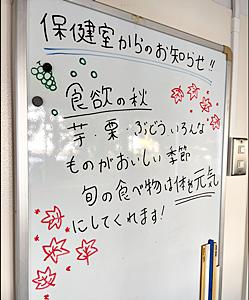 保健室からのお知らせ!!
食欲の秋
芋・栗・ぶどういろんな
ものがおいしい季節
旬の食べ物は体を元気
にしてくれます!